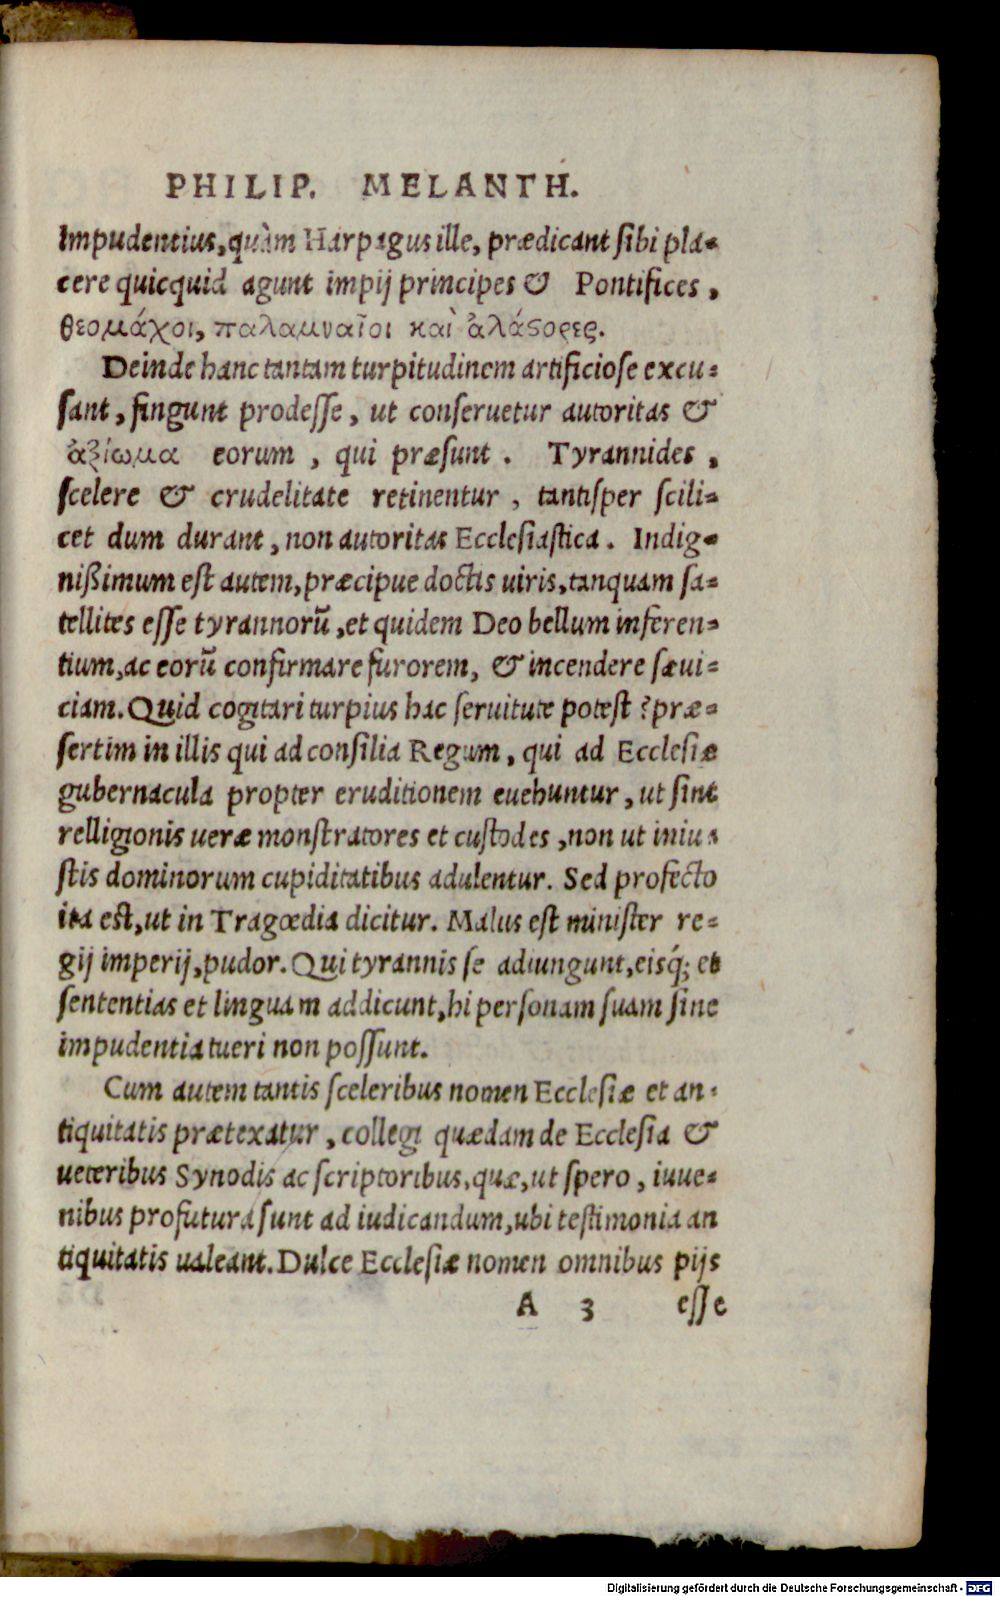 PHILIP. MELANTH.
Impudentius, quàm Harpagus ille, prædicant sibi pla-
cere quicquid agunt impij principes & Pontifices,
θεομάχοι, παλαμναῖοι καὶ ἀλάϛορες.
Deinde hanc tantam turpitudinem artificiose excu-
sant, fingunt prodesse, ut conseruetur autoritas &
ἀξίωμα eorum, qui præsunt. Tyrannides,
scelere & crudelitate retinentur, tantisper scili-
cet dum durant, non autoritas Ecclesiastica. Indig-
nißimum est autem, præcipue doctis uiris, tanquam sa-
tellites esse tyrannorũ, et quidem Deo bellum inferen-
tium, ac eorũ confirmare furorem, & incendere sæui-
ciam. Quid cogitari turpius hac seruitute potest? præ-
sertim in illis qui ad consilia Regum, qui ad Ecclesiæ
gubernacula propter eruditionem euehuntur, ut sint
relligionis ueræ monstratores et custodes, non ut iniu-
stis dominorum cupiditatibus adulentur. Sed profecto
ita est, ut in Tragœdia dicitur. Malus est minister re-
gij imperij, pudor. Qui tyrannis se adiungunt, eisq́; et
sententias et linguam addicunt, hi personam suam sine
impudentia tueri non possunt.
Cum autem tantis sceleribus nomen Ecclesiæ et an-
tiquitatis prætexatur, collegi quædam de Ecclesia &
ueteribus Synodis ac scriptoribus, quæ, ut spero, iuue-
nibus profutura sunt ad iudicandum, ubi testimonia an
tiquitatis ualeant. Dulce Ecclesiæ nomen omnibus pijs
A 3 esse
Digitalisierung gefördert durch die Deutsche Forschungsgemeinschaft - DFG